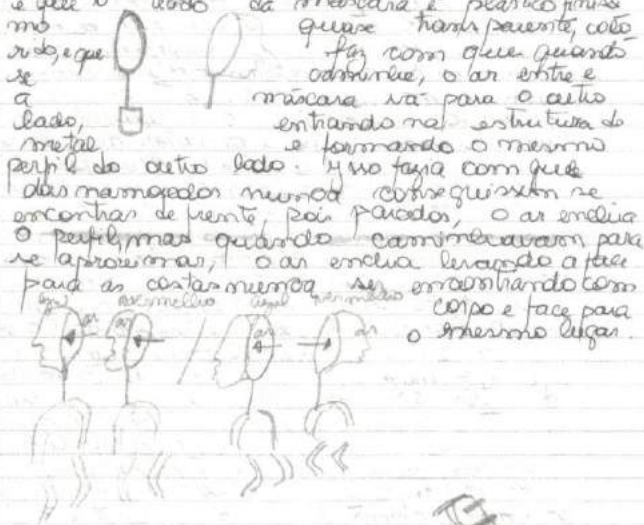 é que o lado da máscara é plástico finíssi
mo quase transparente, colo
rido, e que faz com que quando
se caminhe, o ar entre e
a máscara vá para o outro
lado, entrando na estrutura do
metal e formando o mesmo
perfil do outro lado. Isso fazia com que
dos namorados nunca conseguissem se
encontrar de frente, pois parados, o ar enchia
o perfil, mas quando caminhavam para
se aproximar, o ar enchia levando a face
para as costas nunca se encontrando com
corpo e face para
o mesmo lugar.
vermelho azul vermelho
ar ar ar ar